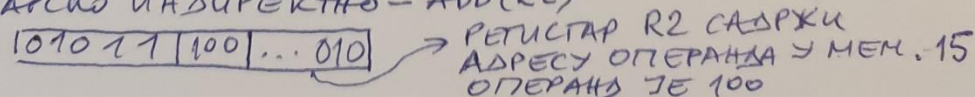 ИНДИРЕКТНО -
01011|100|...010 → РЕГИСТАР R2 САДРЖИ
АДРЕСУ ОПЕРАНДА У МЕМ. 15
ОПЕРАНД ЈЕ 100